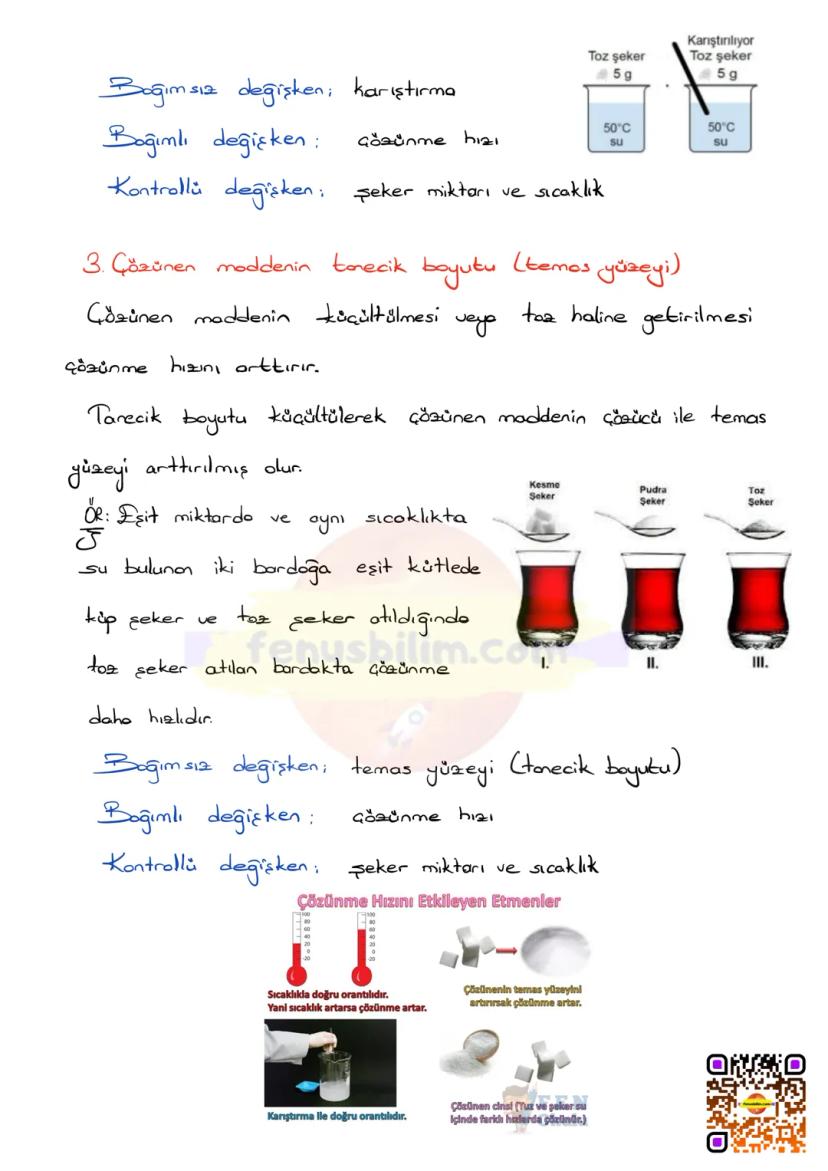 Toz şeker
5 g
50°C
su
Karıştırılıyor
Toz şeker
5 g
50°C
su
Bağımsız değişken; karıştırma
Bağımlı değişken; çözünme hızı
Kontrollü değişken; şeker miktarı ve sıcaklık
3. Çözünen maddenin tanecik boyutu (temas yüzeyi)
Çözünen maddenin küçültülmesi veya toz haline getirilmesi
çözünme hızını arttırır.
Tanecik boyutu küçültülerek çözünen maddenin çözücü ile temas
yüzeyi arttırılmış olur.
ÖR: Eşit miktarda ve aynı sıcaklıkta
su bulunan iki bardağa eşit kütlede
küp şeker ve toz şeker atıldığında
toz şeker atılan bardakta çözünme
daha hızlıdır.
Kesme
Şeker
Pudra
Şeker
Toz
Şeker
I.
II.
III.
fenusbilim.com
Bağımsız değişken; temas yüzeyi (tanecik boyutu)
Bağımlı değişken; çözünme hızı
Kontrollü değişken; şeker miktarı ve sıcaklık
Çözünme Hızını Etkileyen Etmenler
100
80
60
40
20
0
-20
100
80
60
40
20
0
-20
Sıcaklıkla doğru orantılıdır.
Yani sıcaklık artarsa çözünme artar.
Çözünenin temas yüzeyini
artırırsak çözünme artar.
Karıştırma ile doğru orantılıdır.
Çözünen cinsi (Tuz ve şeker su
içinde farklı hızlarda çözünür.)
FEN
fenusbilim.com